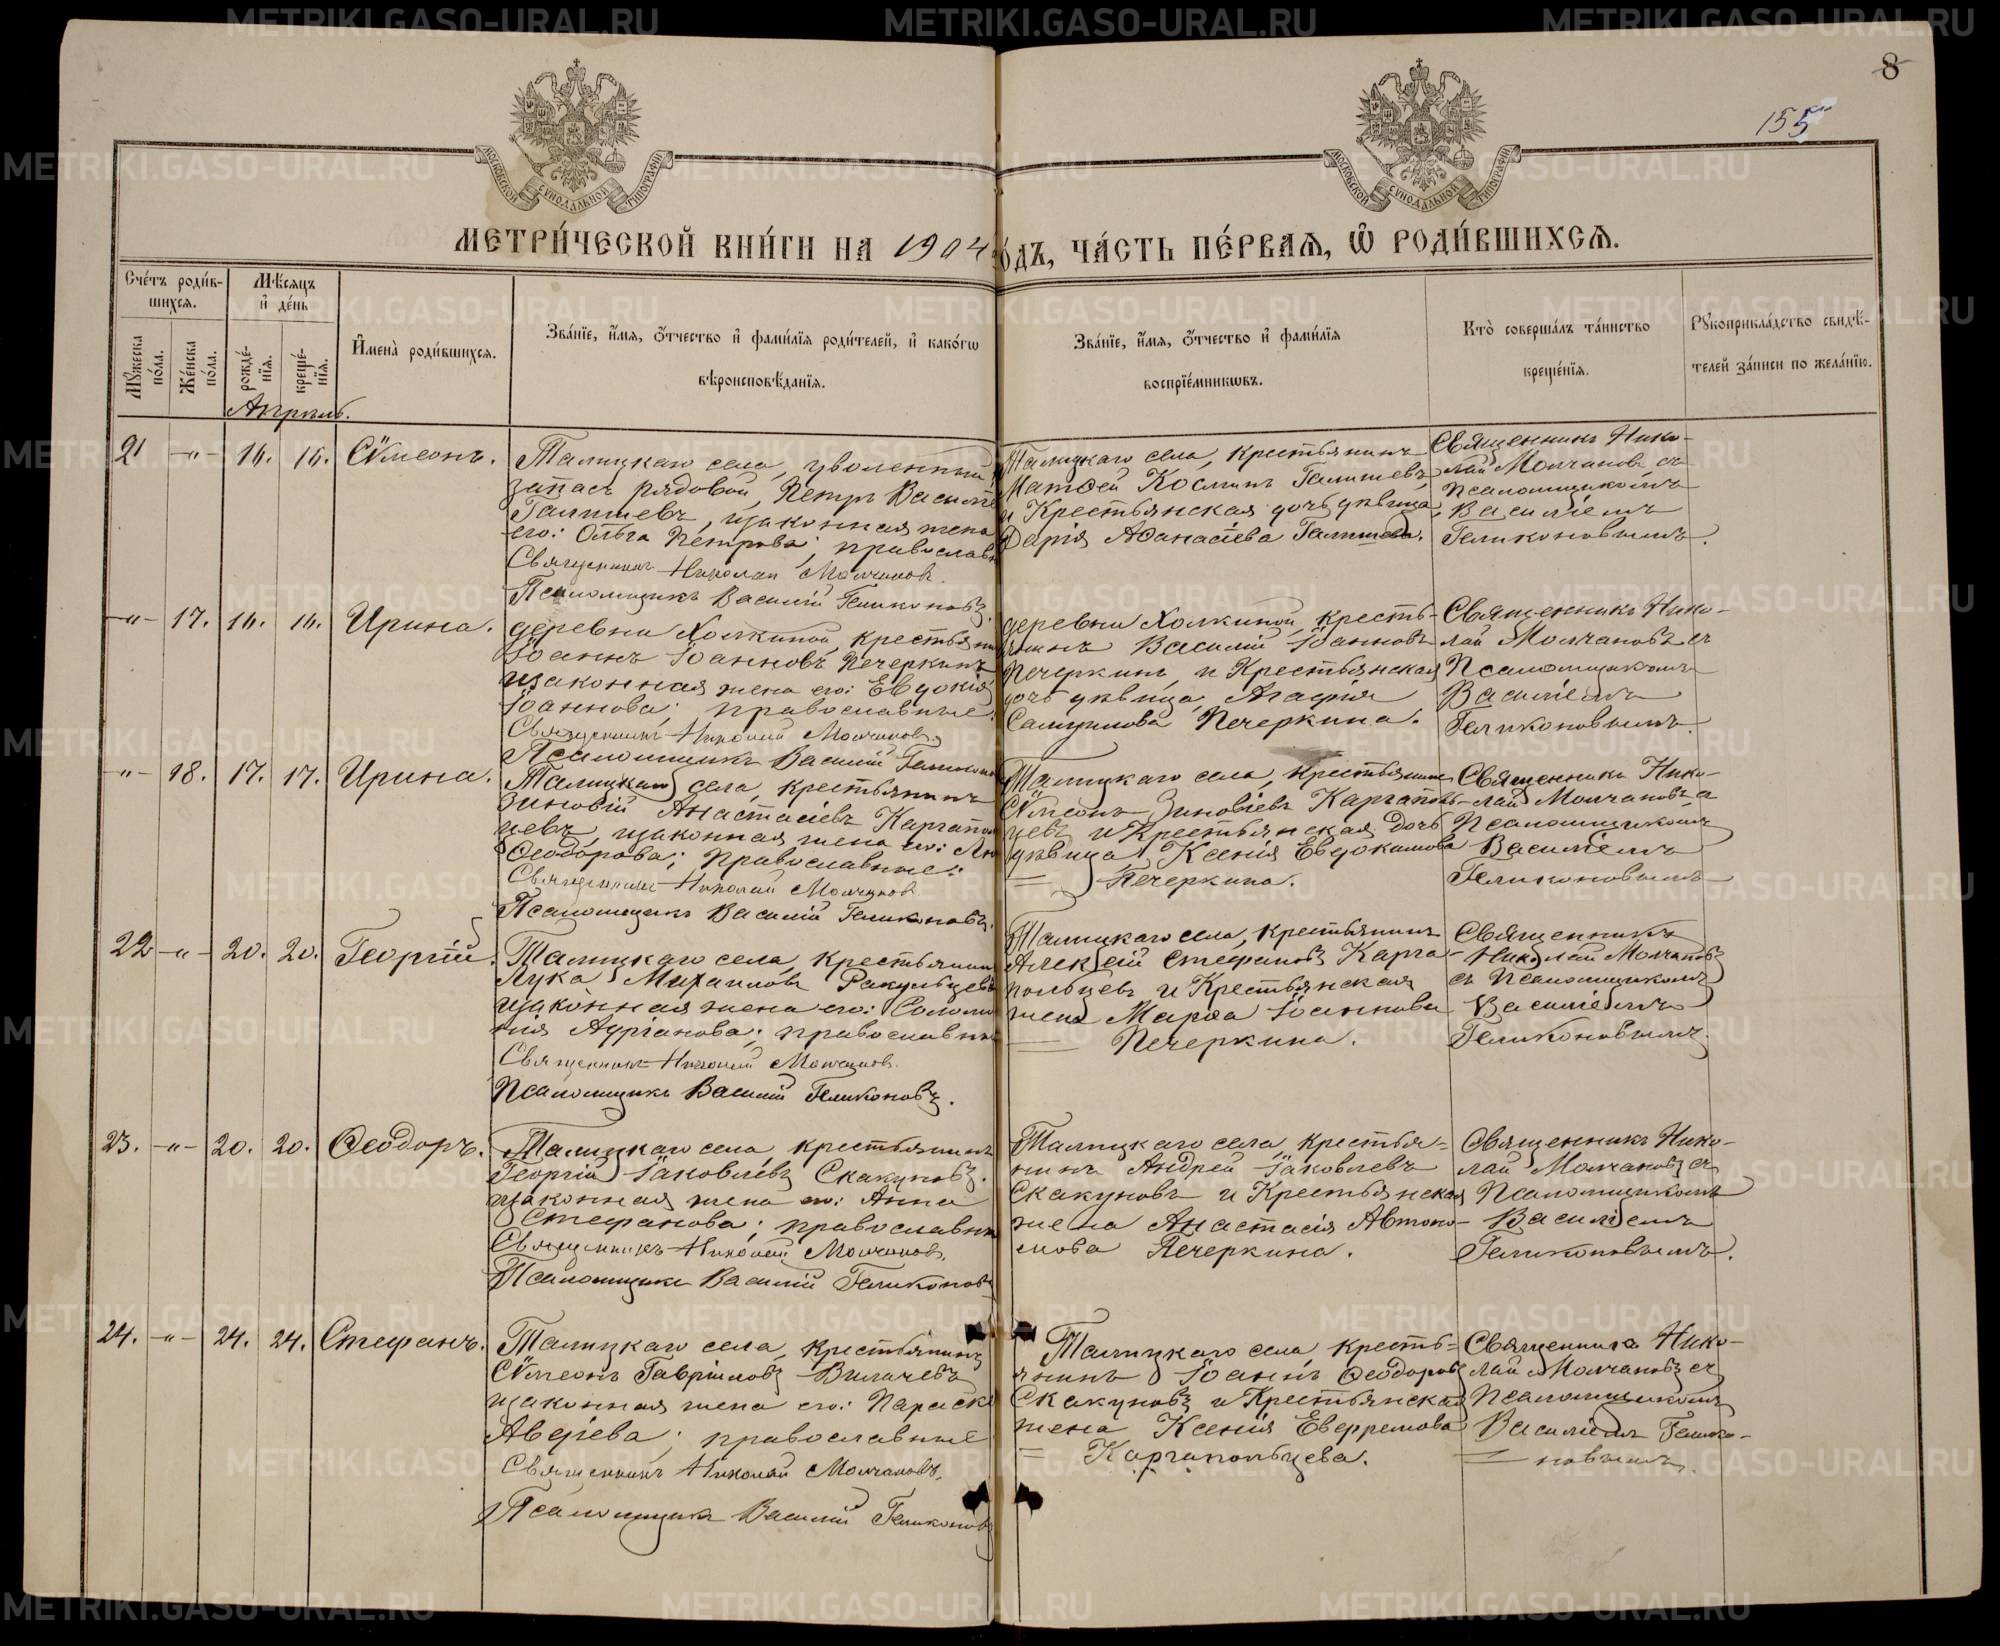 8
155
МОСКОВСКОЙ СѴНОДАЛЬНОЙ ТИПОГРАФІИ
МОСКОВСКОЙ СѴНОДАЛЬНОЙ ТИПОГРАФІИ
МЕТРИ́ЧЕСКОЙ КНИ́ГИ НА 1904 ГО́ДЪ, ЧА́СТЬ ПЕ́РВАѦ, Ѽ РОДИ́ВШИХСѦ.
Сче́тъ роди́в-
шихсѧ.
Мꙋ́жеска по́ла.
Же́нска по́ла.
Мѣ́сѧцъ
и҆ де́нь
рожде́-нїѧ.
креще́-нїѧ.
И҆мена̀ роди́вшихсѧ.
Зва́нїе, и҆́мѧ, ѻ҆́тчество и҆ фами́лїѧ роди́телей, и҆ како́гѡ
вѣроисповѣ́данїѧ.
Зва́нїе, и҆́мѧ, ѻ҆́тчество и҆ фами́лїѧ
воспрїе́мникѡвъ.
Кто̀ соверша́лъ та́инство
креще́нїѧ.
Рꙋкоприкла́дство свидѣ́-
телей за́писи по жела́нїю.
Апрѣль.
21 -"- 16. 16. Сѷмеонъ.
Талицкаго села, уволенный
запасъ рядовой, Петръ Василье
Галишевъ, и законная жена
его: Ольга Петрова; православн
Священникъ Николай Молчановъ.
Псаломщикъ Василій Геликоновъ.
Талицкаго села, крестьянинъ
Матѳей Косминъ Галишевъ
и Крестьянская дочь дѣвица,
Дарія Аѳанасіева Галишева.
Священникъ Нико-
лай Молчановъ съ
Псаломщикомъ
Василіемъ
Геликоновымъ.
-"- 17. 16. 16. Ирина.
деревни Холкиной, крестьянин
Іоаннъ Іоанновъ Печеркинъ
и законная жена его: Евдокія
Іоаннова; православные.
Священникъ Николай Молчановъ.
Псаломщикъ Василій Геликонов
деревни Холкиной, кресть-
янинъ Василій Іоанновъ
Печеркинъ и Крестьянская
дочь дѣвица, Агафія
Самуилова Печеркина.
Священникъ Нико-
лай Молчановъ съ
Псаломщикомъ
Василіемъ
Геликоновымъ.
-"- 18. 17. 17. Ирина.
Талицкаго села, крестьянинъ
Зиновій Анастасіевъ Каргапол
цевъ, и законная жена его: Ан
Ѳеодорова; православные.
Священникъ Николай Молчановъ
Псаломщикъ Василій Геликоновъ.
Талицкаго села, крестьянинъ
Сѷмеонъ Зиновіевъ Каргаполь-
цевъ и Крестьянская дочь
дѣвица, Ксенія Евдокимова
= Печеркина.
Священникъ Нико-
лай Молчановъ съ
Псаломщикомъ
Василіемъ
Геликоновымъ
22 -"- 20. 20. Георгій.
Талицкаго села, крестьянинъ
Лука Михаиловъ Ракульцевъ
и законная жена его: Соломо
нія Адріанова; православные
Священникъ Николай Молчановъ.
Псаломщикъ Василій Геликоновъ.
Талицкаго села, крестьянинъ
Алексій Стефановъ Карга-
польцевъ и Крестьянская
жена Марѳа Іоаннова
= Печеркина.
Священникъ
Николай Молчановъ
съ Псаломщикомъ
Василіемъ
Геликоновымъ.
23. -"- 20. 20. Ѳеодоръ.
Талицкаго села, крестьянинъ
Георгій Іаковлевъ Скакуновъ.
и законная жена его: Анна
Стефанова; православны
Священникъ Николай Молчановъ.
Псаломщикъ Василій Геликоновъ
Талицкаго села, крестья=
нинъ Андрей Іаковлевъ
Скакуновъ и Крестьянская
жена Анастасія Автоно-
мова Печеркина.
Священникъ Нико-
лай Молчановъ съ
Псаломщикомъ
Василіемъ
Геликоновымъ.
24. -"- 24. 24. Стефанъ.
Талицкаго села, крестьянинъ
Сѷмеонъ Гавріиловъ Вилачевъ
и законная жена его: Параске
Аверіева; православные
Священникъ Николай Молчановъ.
Псаломщикъ Василій Геликоновъ
Талицкаго села, кресть=
янинъ Іоаннъ Ѳеодоровъ
Скакуновъ и Крестьянская
жена Ксенія Евфремова
= Каргапольцева.
Священникъ Нико-
лай Молчановъ съ
Псаломщикомъ
Василіемъ Гелико-
= новымъ.
METRIKI.GASO-URAL.RU